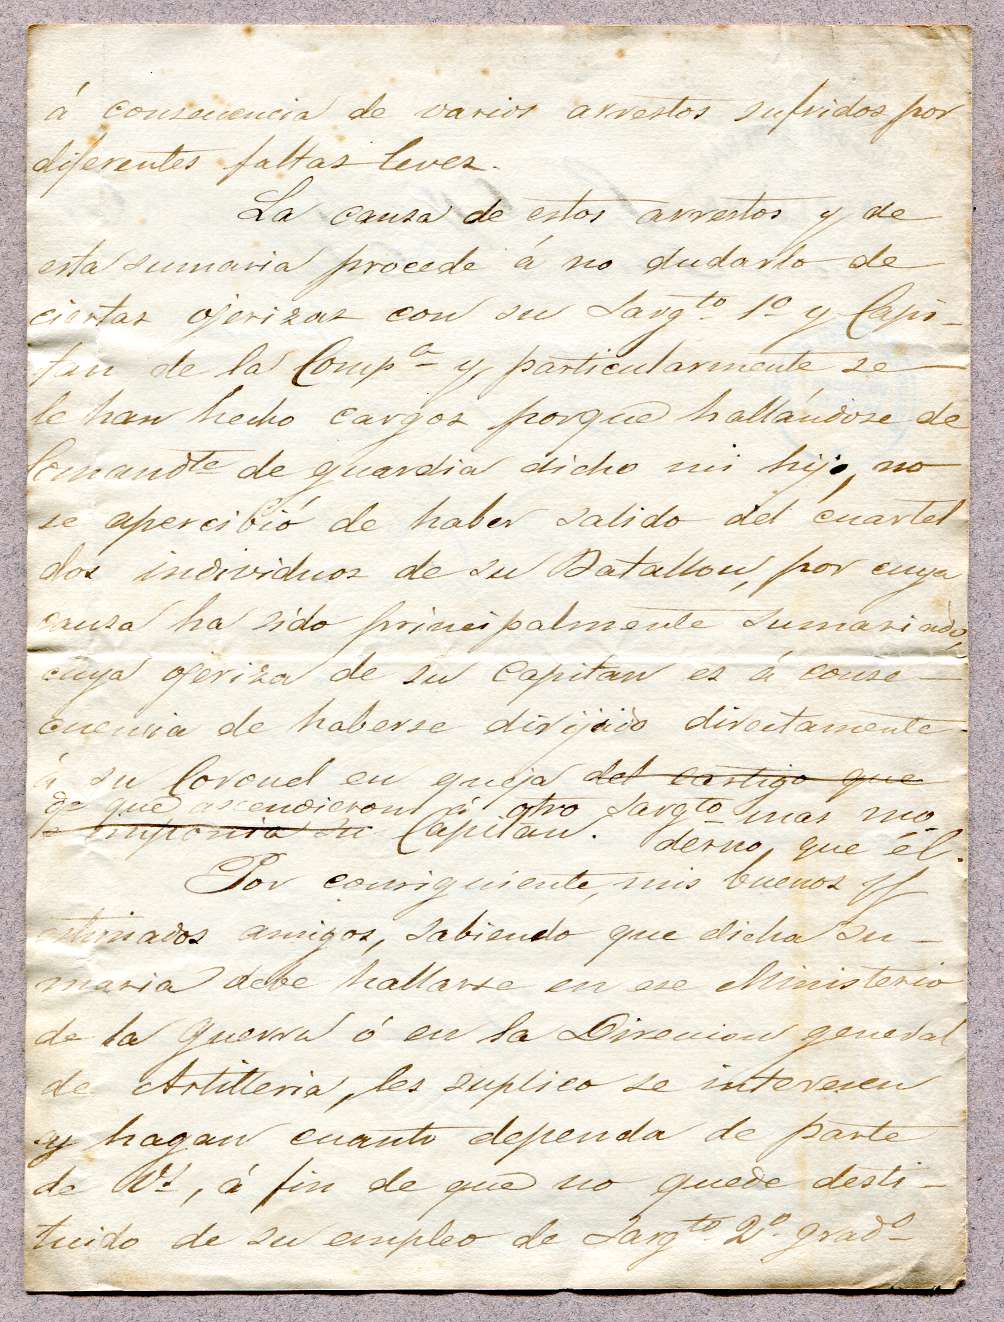 á consecuencia de varios arrestos sufridos por
diferentes faltas leves.
La causa de estos arrestos y de
esta sumaria procede á no dudarlo de
ciertas ojerizas con su Sargto. 1º y Capi-
tan de la Compa. y particularmente se
le han hecho cargos porque hallándose de
Comandte de guardia dicho mi hijo, no
se apercibió de haber salido del cuartel
dos individuos de su Batallon, por cuya
causa ha sido principalmente sumariado,
cuya ojeriza de su Capitan es á conse-
cuencia de haberse dirijido directamente
á su Coronel en queja del castigo que
de que ascendieron á otro Sargto mas mo-
le imponia su Capitan. derno, que él.
Por consiguiente, mis buenos y
estimados amigos, sabiendo que dicha su-
maria debe hallarse en ese Ministerio
de la Guerra ó en la Direccion general
de Artilleria, les suplico se interesen
y hagan cuanto dependa de parte
de Vs., á fin de que no quede desti-
tuido de su empleo de Sargto. 2º. grado